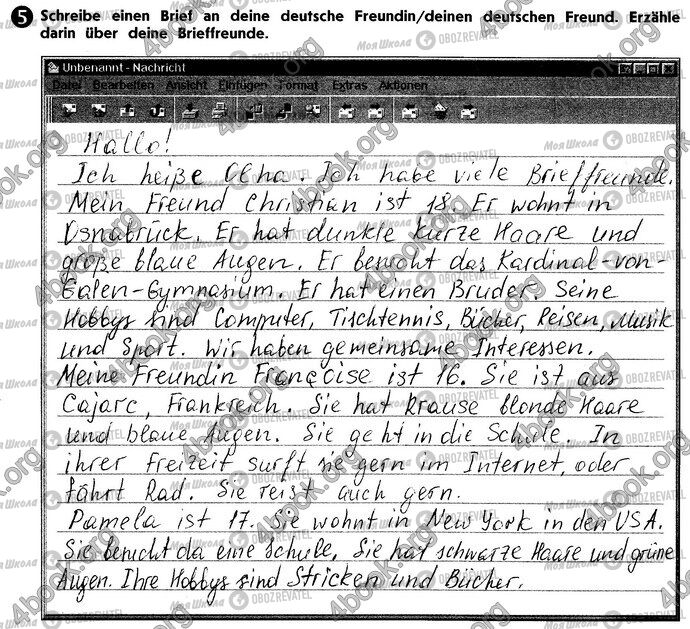 5 Schreibe einen Brief an deine deutsche Freundin/deinen deutschen Freund. Erzähle
darin über deine Brieffreunde.
Unbenannt - Nachricht
Datei Bearbeiten Ansicht Einfügen Format Extras Aktionen
Hallo!
Ich heiße Olha. Ich habe viele Brieffreunde.
Mein Freund Christian ist 18. Er wohnt in
Osnabrück. Er hat dunkle kurze Haare und
große blaue Augen. Er besucht das Kardinal-von-
Galen-Gymnasium. Er hat einen Bruder. Seine
Hobbys sind Computer, Tischtennis, Bücher, Reisen, Musik
und Sport. Wir haben gemeinsame Interessen.
Meine Freundin Françoise ist 16. Sie ist aus
Cajarc, Frankreich. Sie hat krause blonde Haare
und blaue Augen. Sie geht in die Schule. In
ihrer Freizeit surft sie gern im Internet, oder
fährt Rad. Sie reist auch gern.
Pamela ist 17. Sie wohnt in New York in den USA.
Sie besucht da eine Schule. Sie hat schwarze Haare und grüne
Augen. Ihre Hobbys sind Stricken und Bücher.
Моя Школа OBOZREVATEL
4book.org